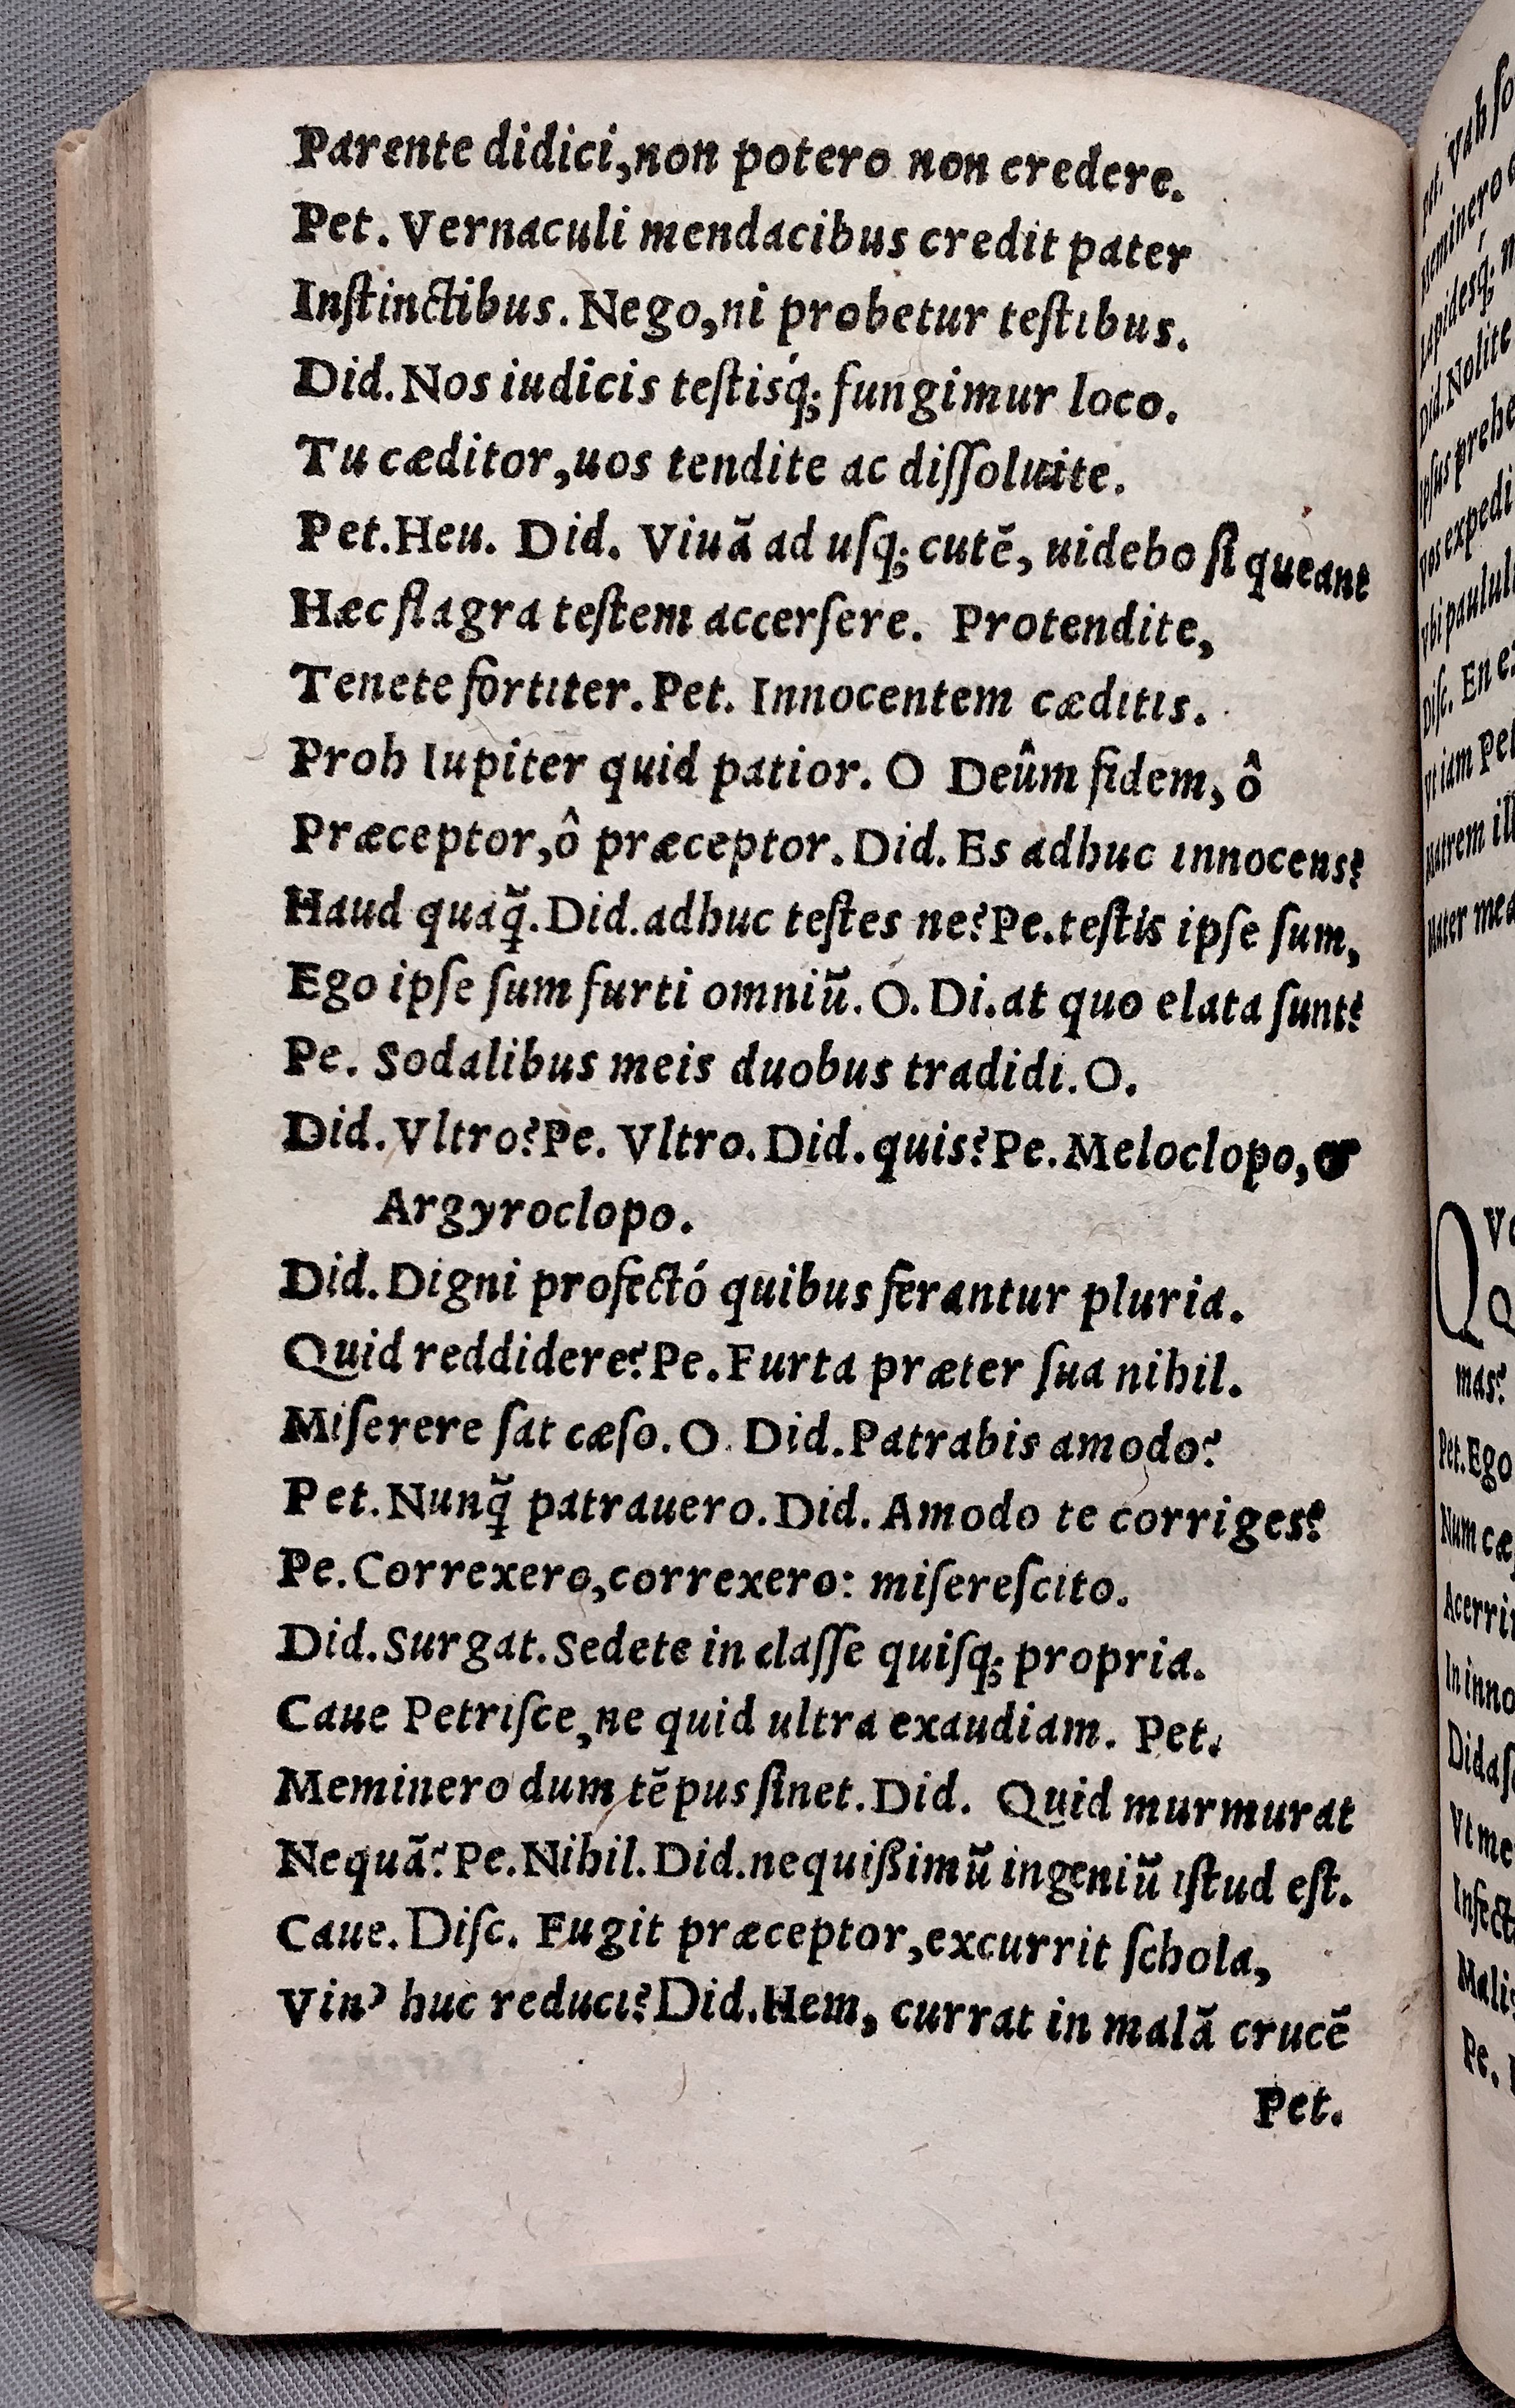 Parente didici, non potero non credere.
Pet. Vernaculi mendacibus credit pater
Inſtinctibus. Nego, ni probetur teſtibus.
Did. Nos iudicis teſtisq́; fungimur loco.
Tu cæditor, uos tendite ac diſſoluite.
Pet. Heu. Did. Viuã ad uſq; cutẽ, uidebo ſi queant
Hæc flagra teſtem accerſere. Protendite,
Tenete fortiter. Pet. Innocentem cæditis.
Proh Iupiter quid patior. O Deûm fidem, ô
Præceptor, ô præceptor. Did. Es adhuc innocens?
Haud quaq̃. Did. adhuc teſtes ne? Pe. teſtis ipſe ſum,
Ego ipſe ſum furti omniũ. O. Di. at quo elata ſunt?
Pe. Sodalibus meis duobus tradidi. O.
Did. Vltro? Pe. Vltro. Did. quis? Pe. Meloclopo, &
Argyroclopo.
Did. Digni profectó quibus ferantur pluria.
Quid reddidere? Pe. Furta præter ſua nihil.
Miſerere ſat cæſo. O. Did. Patrabis amodo?
Pet. Nunq̃ patrauero. Did. Amodo te corriges?
Pe. Correxero, correxero: miſereſcito.
Did. Surgat. Sedete in claſſe quiſq; propria.
Caue Petriſce, ne quid ultra exaudiam. Pet.
Meminero dum tẽpus ſinet. Did. Quid murmurat
Nequã? Pe. Nihil. Did. nequißimũ ingeniũ iſtud eſt.
Caue. Diſc. Fugit præceptor, excurrit ſchola,
Vin' huc reduci? Did. Hem, currat in malã crucẽ
Pet.
Pet. Vah
Meminero
Lapidesq́;
Did. Nolite
Ipſus
Vos
Vbi
Diſc. En
Vt iam
Matrem
Mater
mas?
Pet. Ego
Num
In
Vt me
Pe.